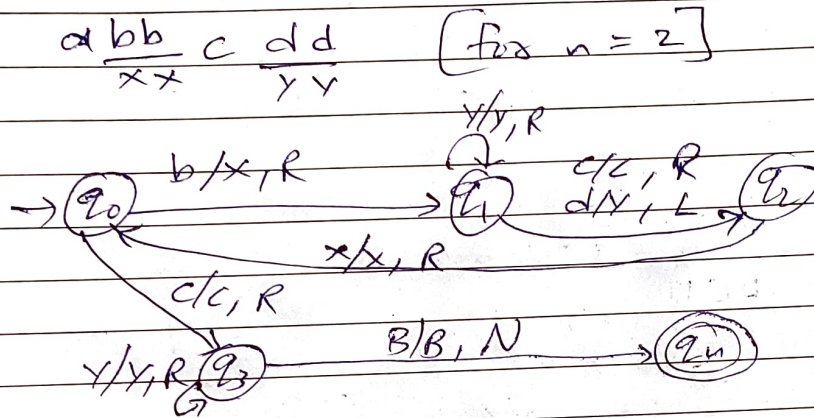 a bb c dd [for n = 2]
xx yy
y/y, R
b/x, R
c/c, R
d/y, L
q0 q1 q2
x/x, R
c/c, R
B/B, N
y/y, R q3 qn